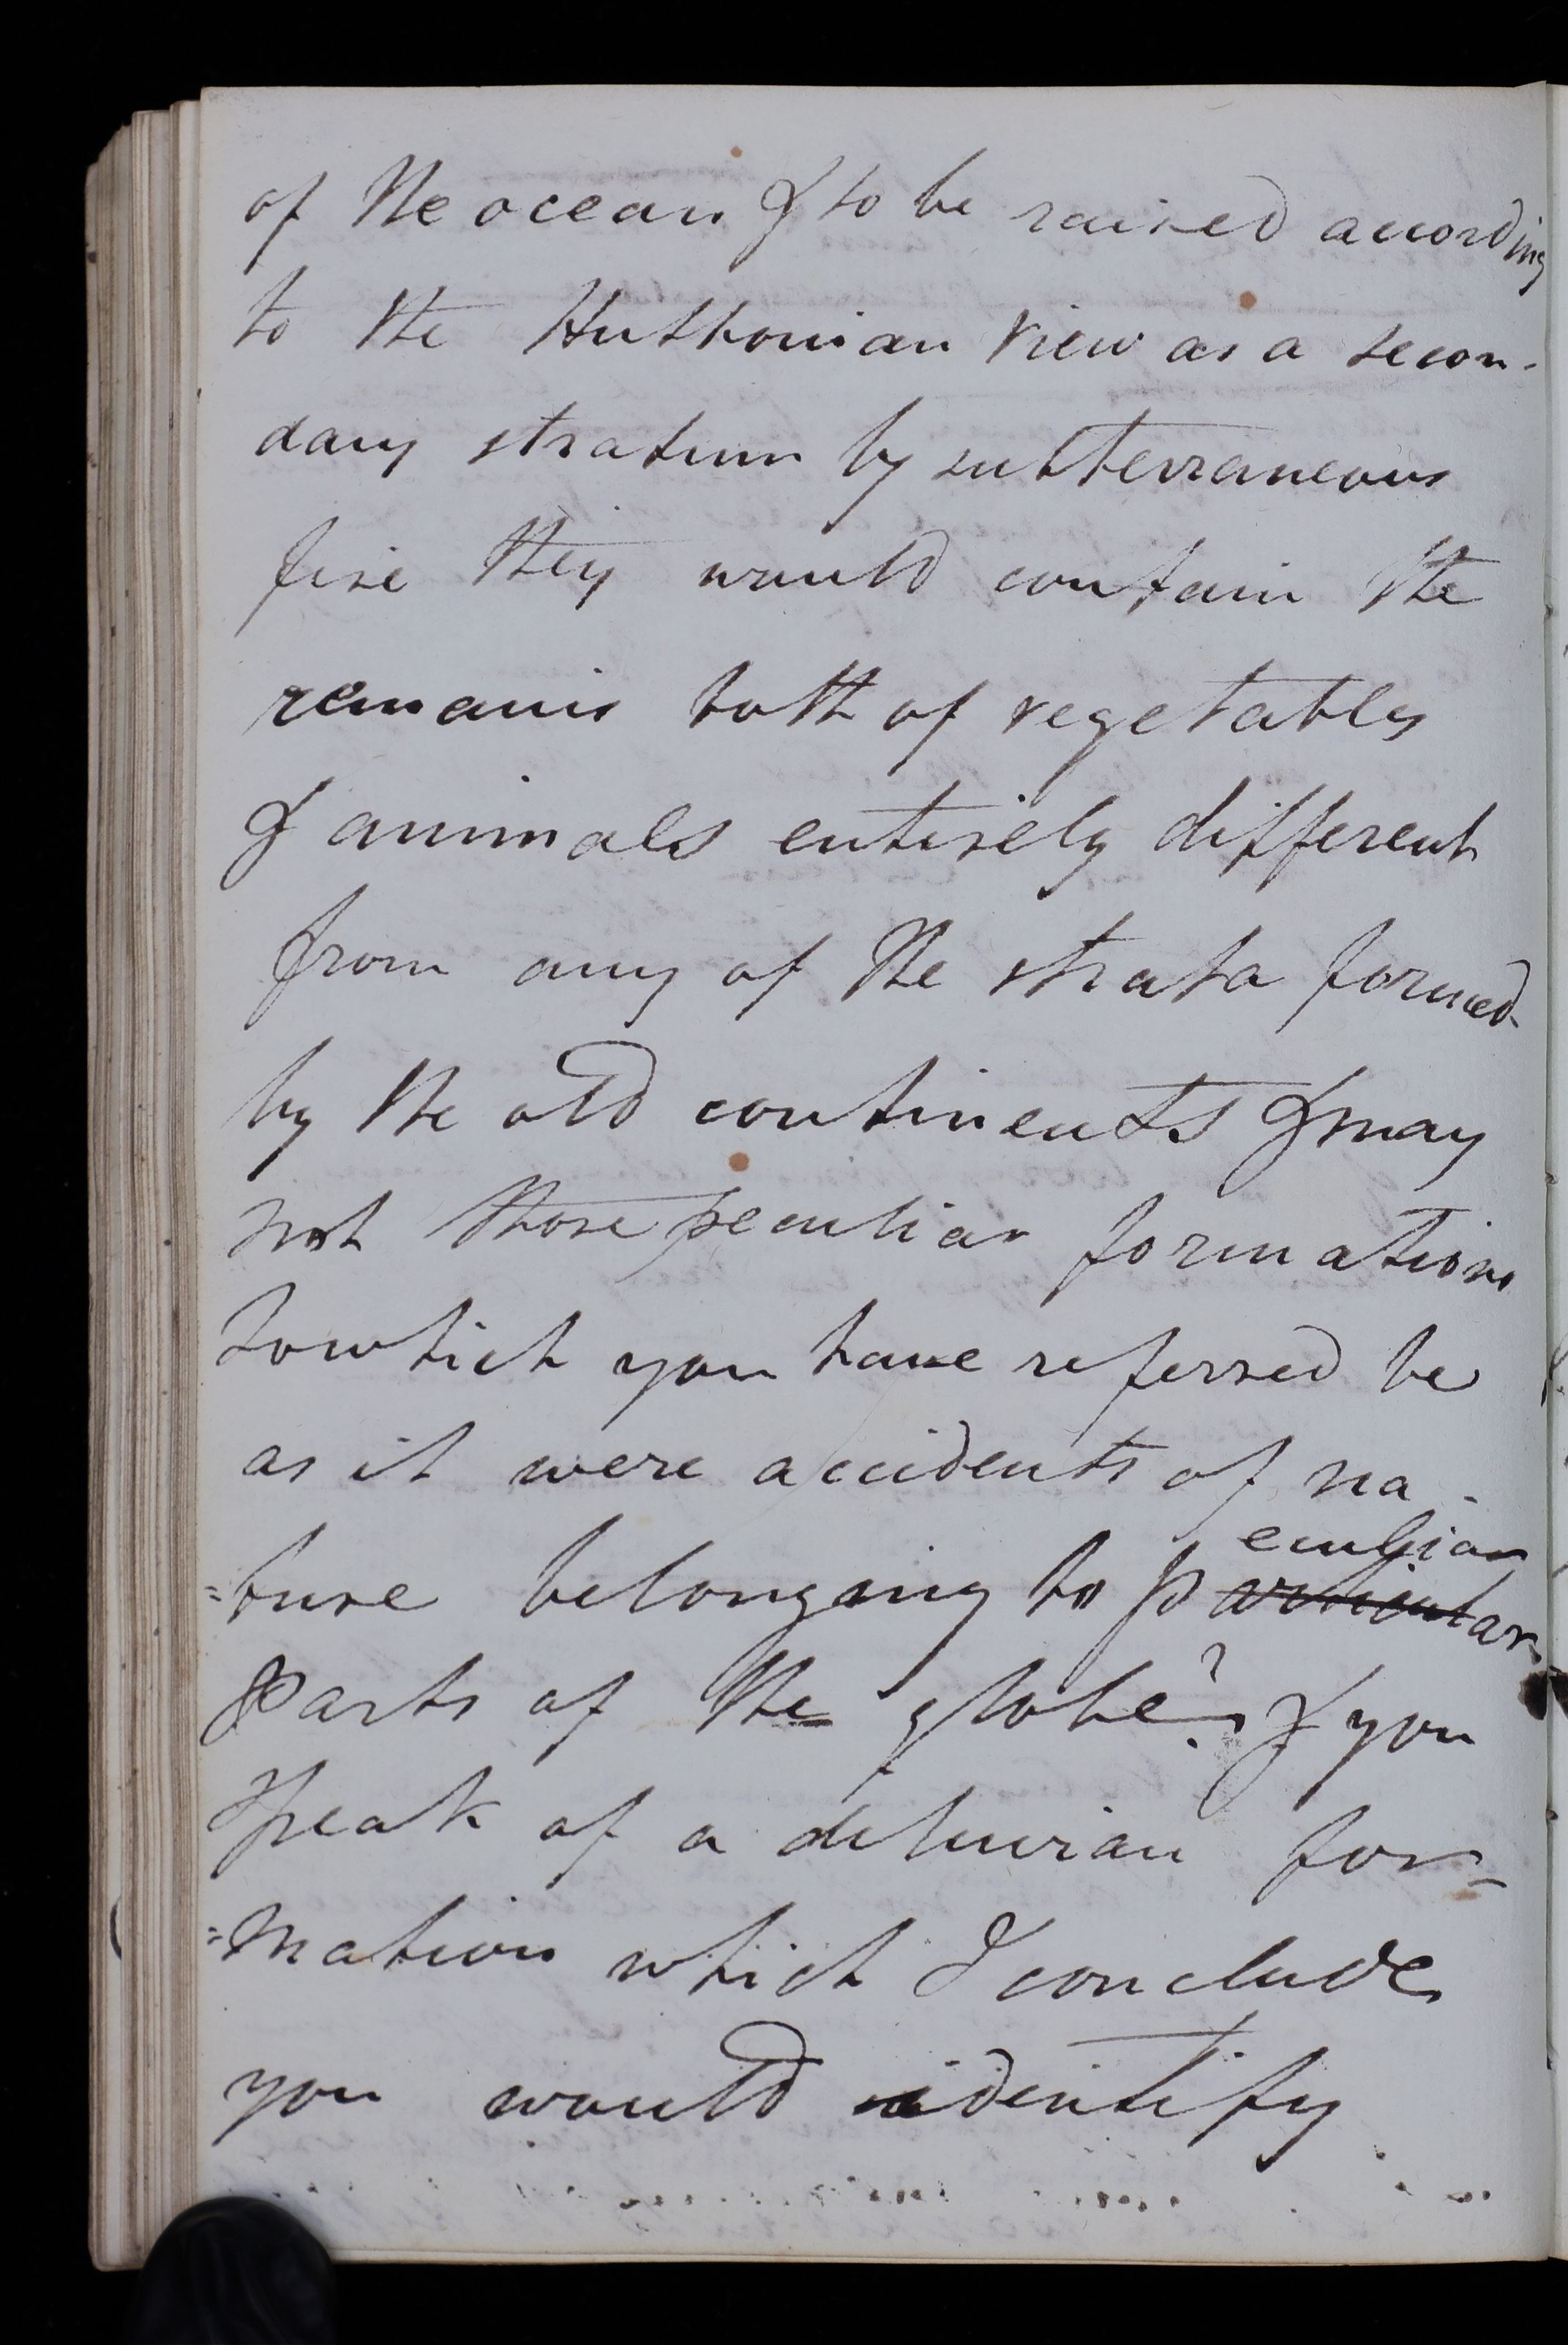 of the ocean & to be raised according
to the Huttonian view as a secon-
dary stratum by subterraneous
fire they would contain the
remains both of vegetables
& animals entirely different
from any of the strata formed
by the old continents & may
not those peculiar formations
to which you have referred be
as it were accidents of na-
=ture belonging to particular
eculiar
parts of the globe? & you
speak of a diluvian for=
=mation which I conclude
you would identify